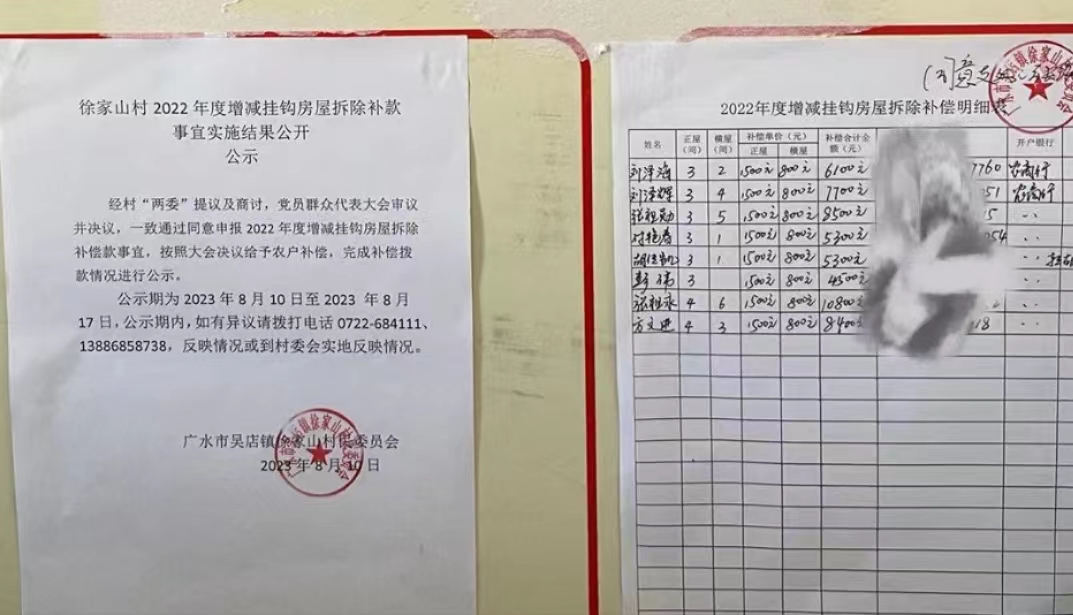 徐家山村 2022 年度增减挂钩房屋拆除补款
事宜实施结果公开
公示
经村“两委”提议及商讨，党员群众代表大会审议
并决议，一致通过同意申报 2022 年度增减挂钩房屋拆除
补偿款事宜，按照大会决议给予农户补偿，完成补偿拨
款情况进行公示。
公示期为 2023 年 8 月 10 日至 2023 年 8 月
17 日，公示期内，如有异议请拨打电话 0722-684111、
13886858738，反映情况或到村委会实地反映情况。
广水市吴店镇徐家山村民委员会
2023 年 8 月 10 日
2022年度增减挂钩房屋拆除补偿明细表
姓名 正屋（间） 横屋（间） 补偿单价（元） 正屋 横屋 补偿合计金额（元） 开户银行
刘泽海 3 2 1500元 800元 6100元 7760 农商行
刘泽辉 3 4 1500元 800元 7700元 51 农商行
张祖勋 3 5 1500元 800元 8500元 5
3 1 1500元 800元 5300元 054
3 1 1500元 800元 5300元
彭伟 3 1500元 800元 4500元
张祖永 4 6 1500元 800元 10800元
方文进 4 3 1500元 800元 8400元 18